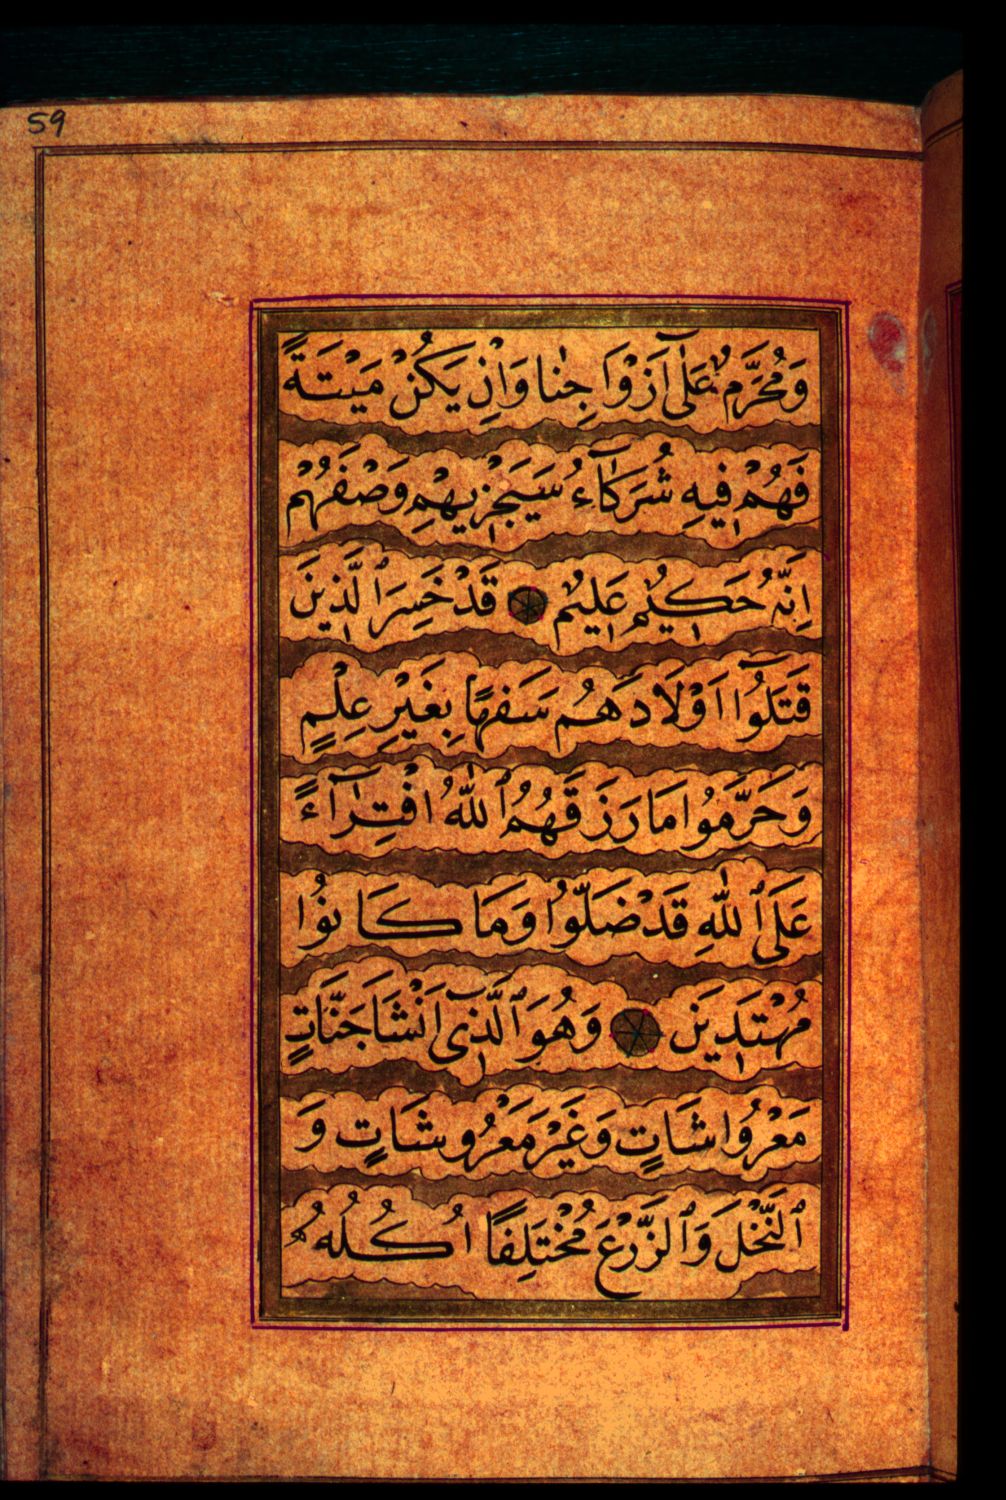 59
وَمُحَرَّمٌ عَلٰٓى اَزْوَاجِنَا وَاِنْ يَكُنْ مَيْتَةً
فَهُمْ فِيهِ شُرَكَٓاءُ سَيَجْزِيهِمْ وَصْفَهُمْ
اِنَّهُ حَكِيمٌ عَلِيمٌ قَدْ خَسِرَ الَّذِينَ
قَتَلُٓوا اَوْلَادَهُمْ سَفَهًا بِغَيْرِ عِلْمٍ
وَحَرَّمُوا مَا رَزَقَهُمُ اللّٰهُ افْتِرَٓاءً
عَلَى اللّٰهِ قَدْ ضَلُّوا وَمَا كَانُوا
مُهْتَدِينَ وَهُوَ الَّذِٓى اَنْشَاَ جَنَّاتٍ
مَعْرُواشَاتٍ وَغَيْرَ مَعْرُوشَاتٍ وَ
النَّخْلَ وَالزَّرْعَ مُخْتَلِفًا اُكُلُهُ